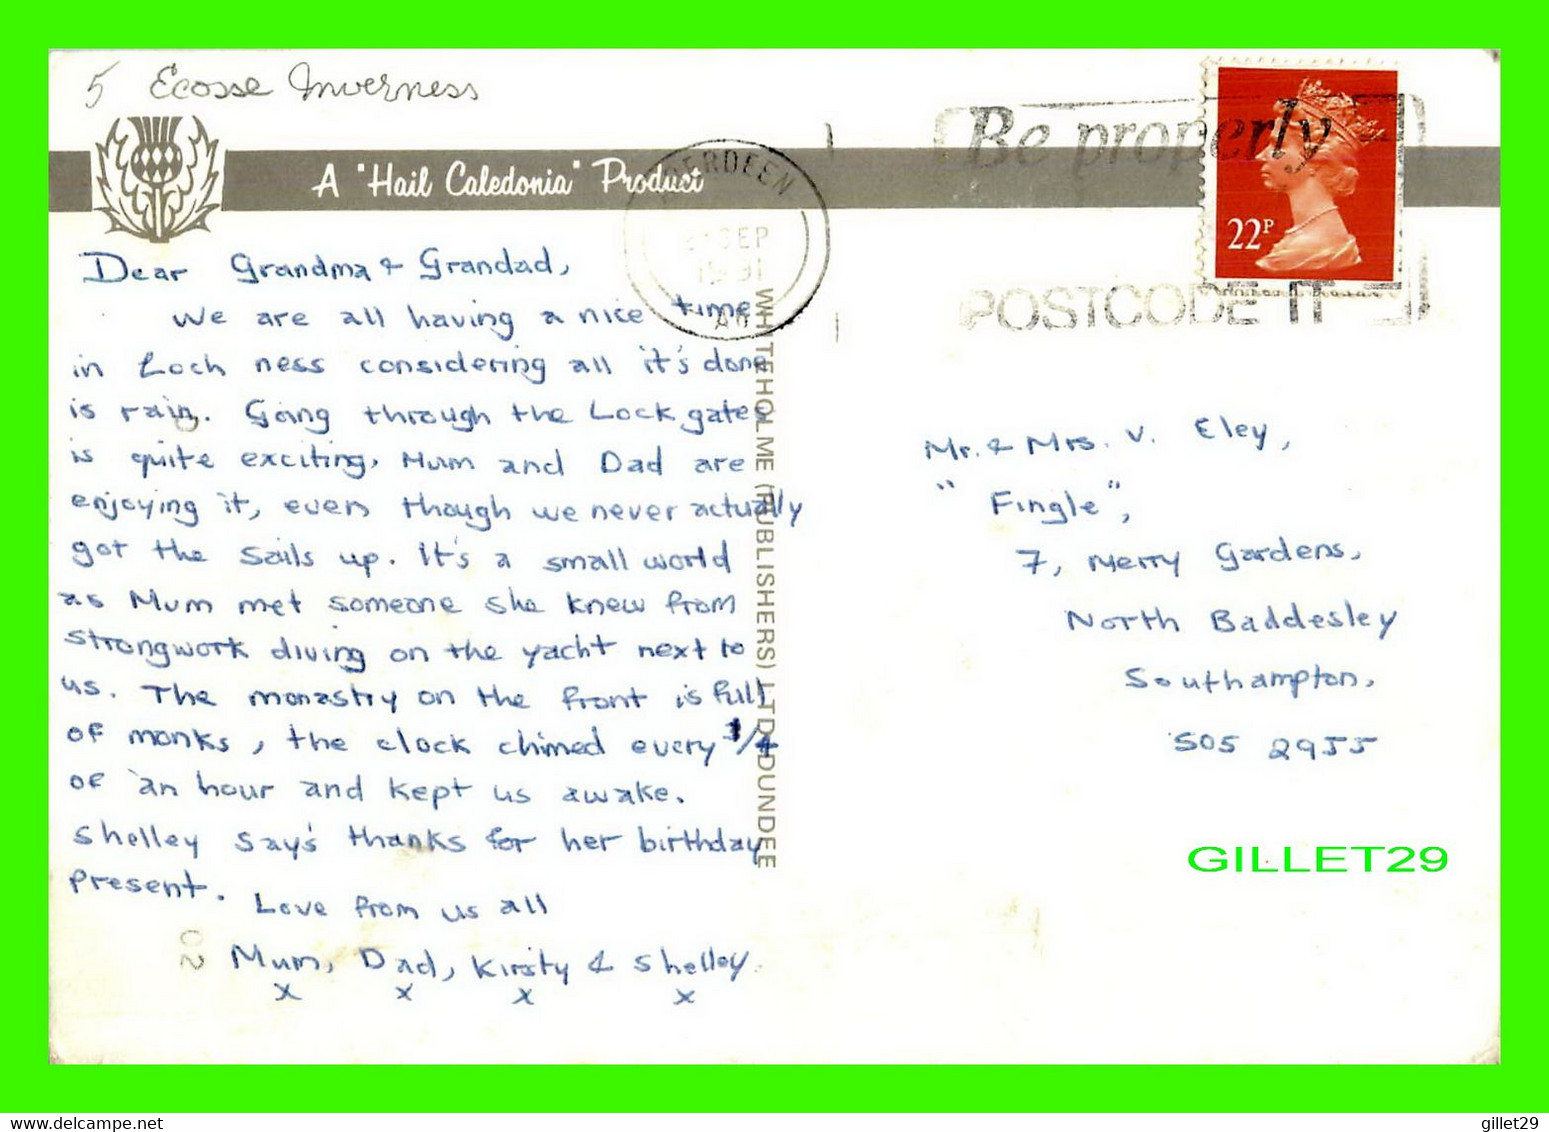 5 Ecosse Inverness
A "Hail Caledonia" Product
ABERDEEN
SEP
1991
Be properly
POSTCODE IT
22P
Dear Grandma & Grandad,
We are all having a nice time
in Loch ness considering all it's done
is rain. Going through the Lock gates
is quite exciting, Mum and Dad are
enjoying it, even though we never actually
got the sails up. It's a small world
as Mum met someone she knew from
strongwork diving on the yacht next to
us. The monastry on the front is full
of monks, the clock chimed every 1/4
of an hour and kept us awake.
Shelley say's thanks for her birthday
present.
Love from us all
Mum, Dad, Kirsty & Shelley.
x x x x
WHITEHOLME (PUBLISHERS) LTD. DUNDEE
Mr. & Mrs. V. Eley,
"Fingle",
7, Merry Gardens,
North Baddesley
Southampton,
S05 2955
GILLET29
gillet29